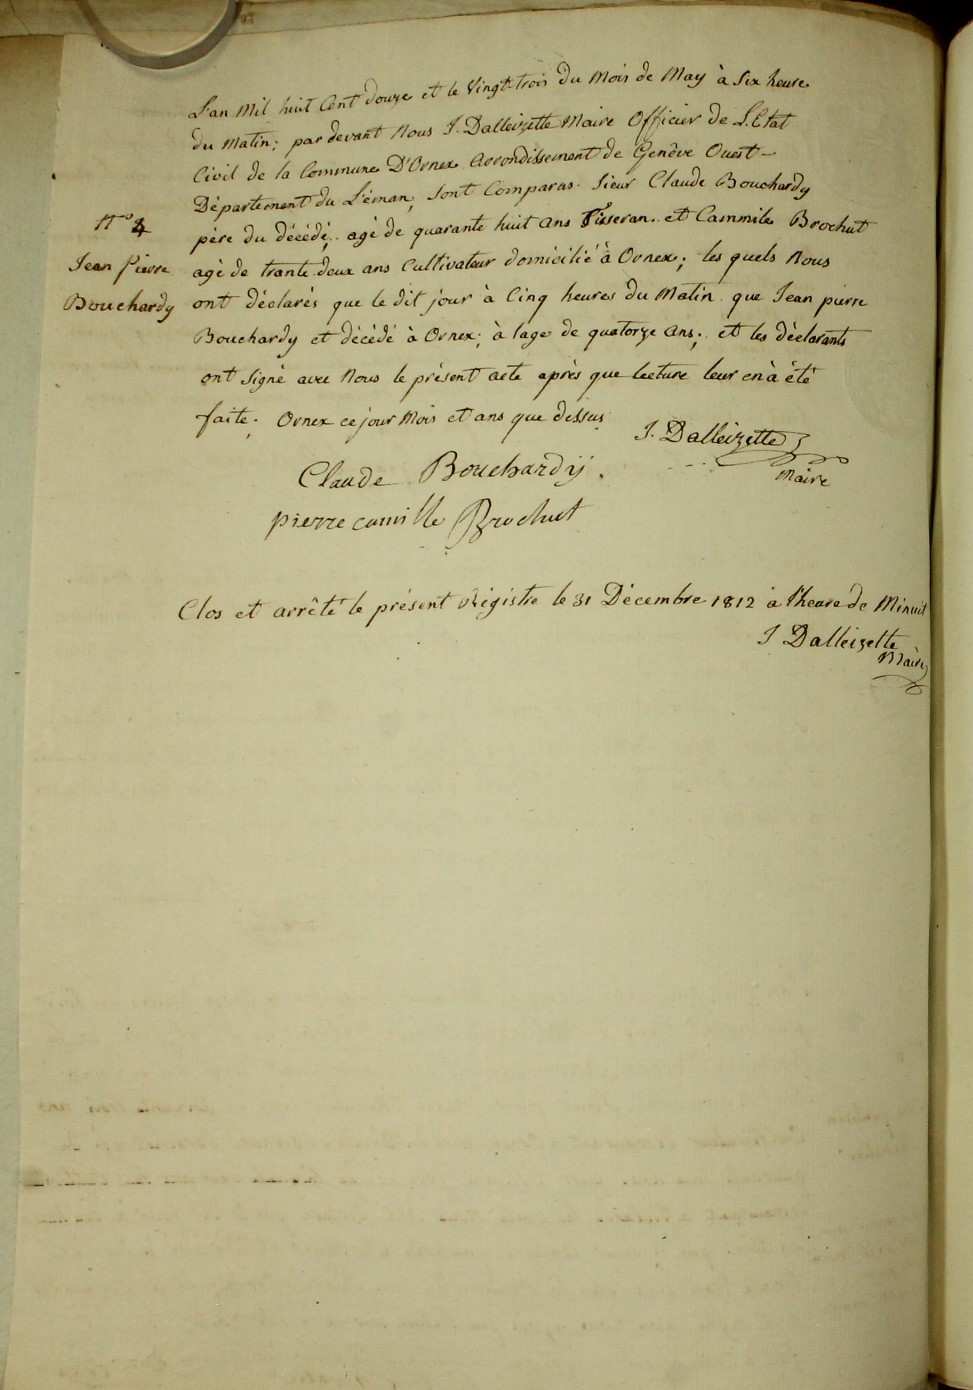 L'an Mil huit Cent douze et le Vingt trois du Mois de May à Six heure
du Matin; par devant Nous J. Dalleizette Maire Officier de L'Etat
Civil de la Commune D'Ornex Arrondissement de Genève Ouest –
Département du L'éman; Sont Comparus. Sieur Claude Bouchardy
père du décédé, agé de quarante huit ans Tisseran. et Cammile Brochut
agé de trante deux ans Cultivateur domicilié à Ornex; les quels Nous
ont déclarés que le dit jour à Cinq heures du Matin que Jean pierre
Bouchardy et décédé à Ornex; à lage de quatorze ans; et les déclarants
ont Signé avec Nous le présent acte après que lecture leur en à été
faite. Ornex ce jour Mois et ans que dessus
N.º 4
Jean Pierre
Bouchardy
J. Dalleizette
Maire
Claude Bouchardÿ.
pierre camille Brochut
Clos et arrêté le présent Régistre le 31 Décembre 1812 à l'heure de Minuit
J Dalleizette
Maire